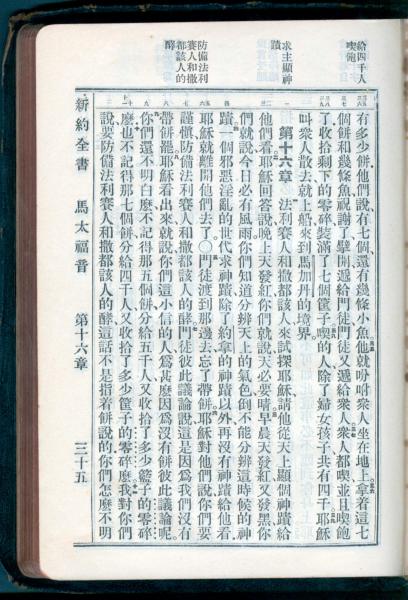 給四千人
喫飽
求主顯神
蹟
防備法利
賽人和撒
都該人的
酵
有多少餅他們說有七個還有幾條小魚他就吩咐衆人坐在地上拿着這七
個餅和幾條魚祝謝了擘開遞給門徒門徒又遞給衆人衆人都喫並且喫飽
了收拾剩下的零碎裝滿了七個筐子喫的人除了婦女孩子共有四千耶穌
叫衆人散去就上船來到馬加丹的境界
第十六章 法利賽人和撒都該人來試探耶穌請他從天上顯個神蹟給
他們看耶穌回答說晚上天發紅你們就說天必要晴早晨天發紅又發黑你
們就說今日必有風雨你們知道分辨天上的氣色倒不能分辨這時候的神
蹟一個邪惡淫亂的世代求神蹟除了約拿的神蹟以外再沒有神蹟給他看
耶穌就離開他們去了〇門徒渡到那邊去忘了帶餅耶穌對他們說你們要
謹慎防備法利賽人和撒都該人的酵門徒彼此議論說這是因爲我們沒有
帶餅罷耶穌看出來就說你們這小信的人爲甚麼因爲沒有餅彼此議論呢
你們還不明白麼不記得那五個餅分給五千人又收拾了多少籃子的零碎
麼也不記得那七個餅分給四千人又收拾了多少筐子的零碎麼我對你們
說要防備法利賽人和撒都該人的酵這話不是指着餅說的你們怎麼不明
新約全書 馬太福音 第十六章 三十五